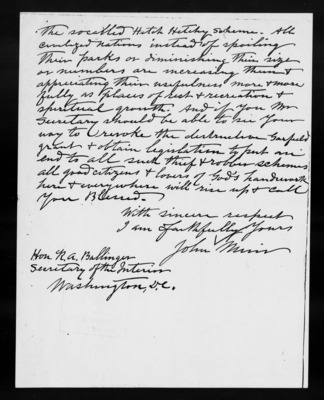 the so called Hetch Hetchy scheme. All
civilized nations instead of spoiling
their parks or diminishing their size
or numbers are increasing them &
appreciating their usefulness more & more
fully as places of rest & recreation &
spiritual growth. And if you Mr
Secretary should be able to see your
way to revoke the destructive Garfield
grant & obtain legislation to put an
end to all such thief & robber schemes
all good citizens & lovers of God's handiwork
here & everywhere will rise up & call
you Blessed.
With sincere respect
I am faithfully Yours
John Muir
Hon R.A. Ballinger
Secretary of the Interior
Washington, D.C.